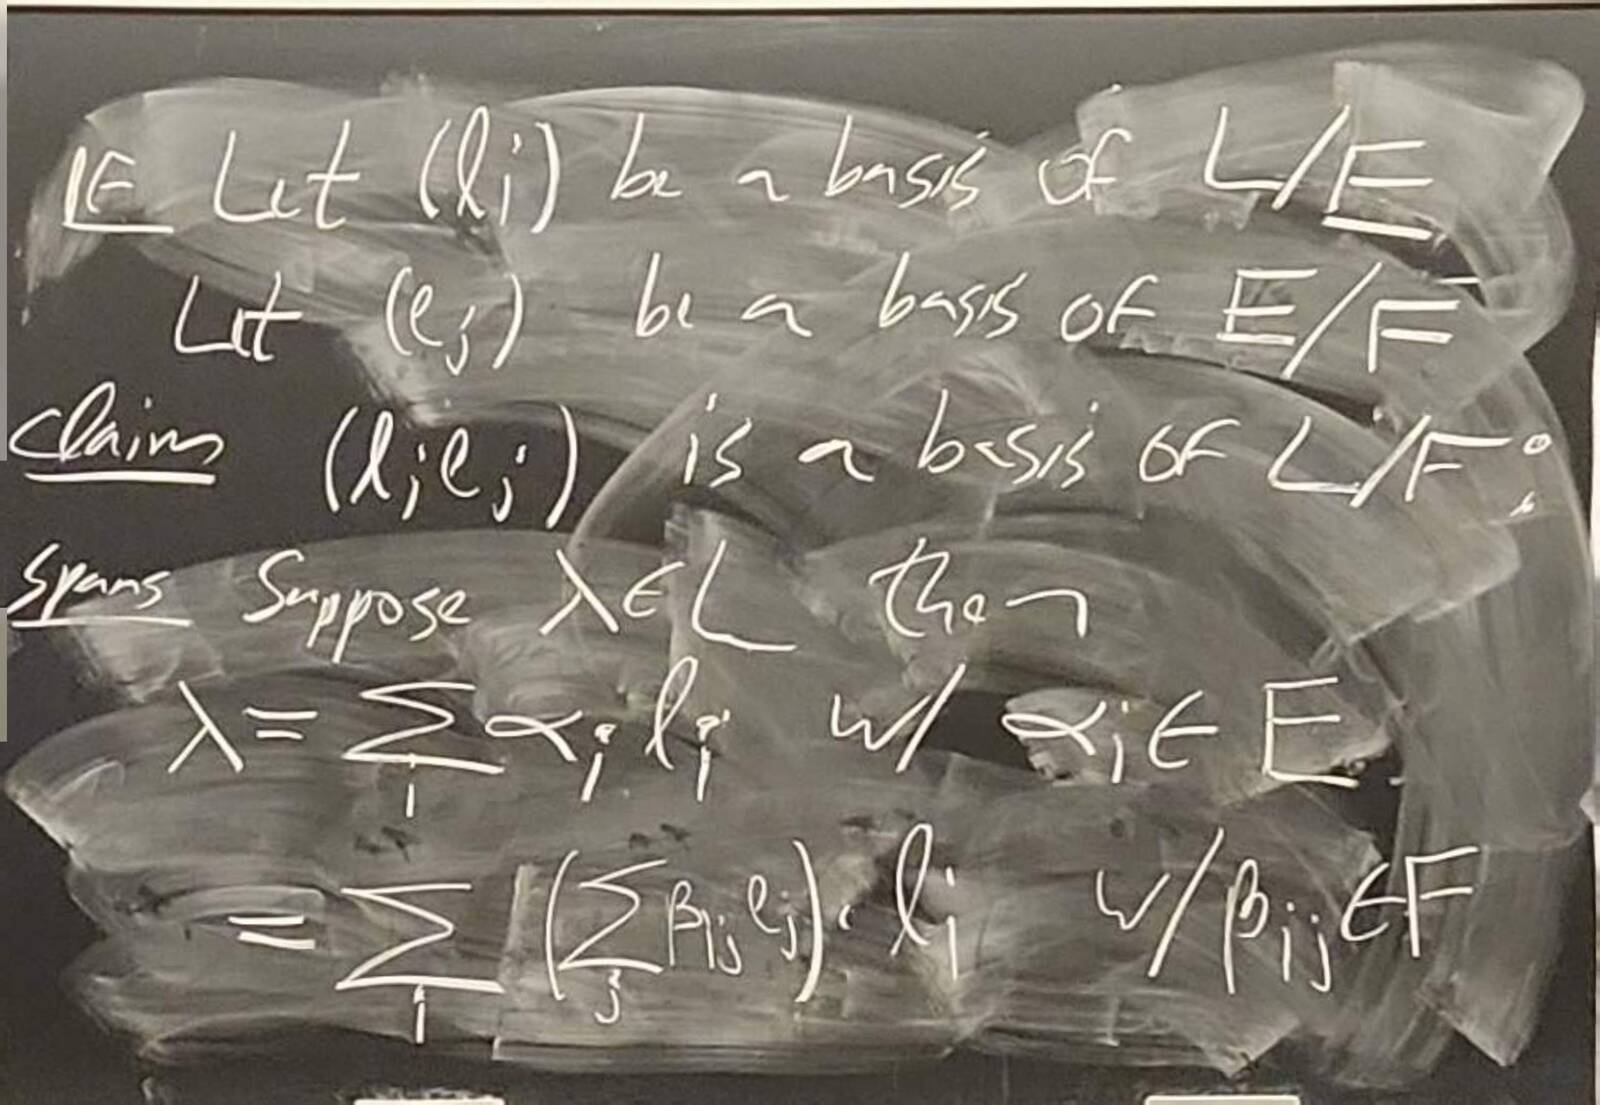 PF Let (l_i) be a basis of L/E.
Let (e_j) be a basis of E/F
Claim (l_i e_j) is a basis of L/F:
Spans Suppose λ∈L then
λ = ∑_i α_i l_i w/ α_i ∈ E.
= ∑_i (∑_j β_ij e_j) · l_i w/ β_ij ∈ F